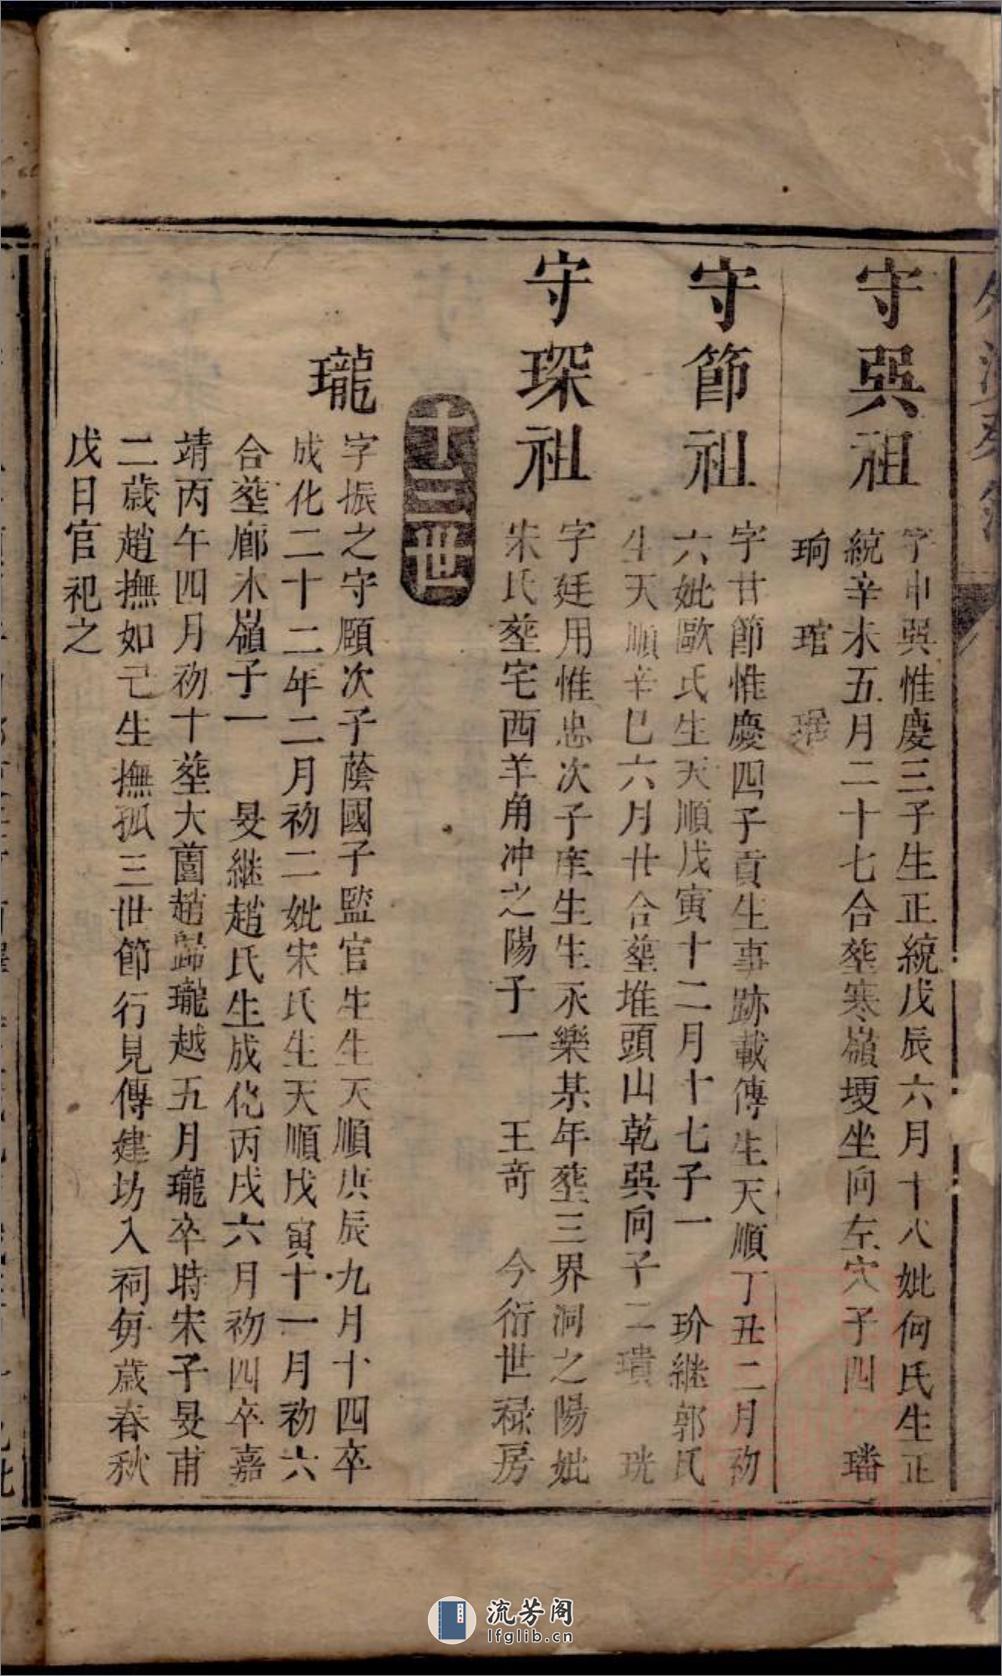 守巽祖
字申巽惟慶三子生正統戊辰六月十八妣何氏生正
統辛未五月二十七合塟寒嶺埂坐向左穴子四 璠
珦 琯 琚
守節祖
字甘節惟慶四子貢生事跡載傳生天順丁丑二月初
六妣歐氏生天順戊寅十二月十七子一 玠継郭氏
生天順辛巳六月廿合塟堆頭山乾巽向子二璝 珖
守琛祖
字廷用惟忠次子庠生生永樂某年塟三界洞之陽妣
朱氏塟宅西羊角冲之陽子一 王奇 今衍世禄房
十三世
瓏
字振之守頤次子蔭國子監官生生天順庚辰九月十四卒
成化二十二年二月初二妣宋氏生天順戊寅十一月初六
合塟廊木嶺子一 旻継趙氏生成化丙戌六月初四卒嘉
靖丙午四月初十塟大薗趙歸瓏越五月瓏卒時宋子旻甫
二歳趙撫如己生撫孤三世節行見傳建坊入祠毎歳春秋
戊日官祀之
流芳阁
lfglib.cn